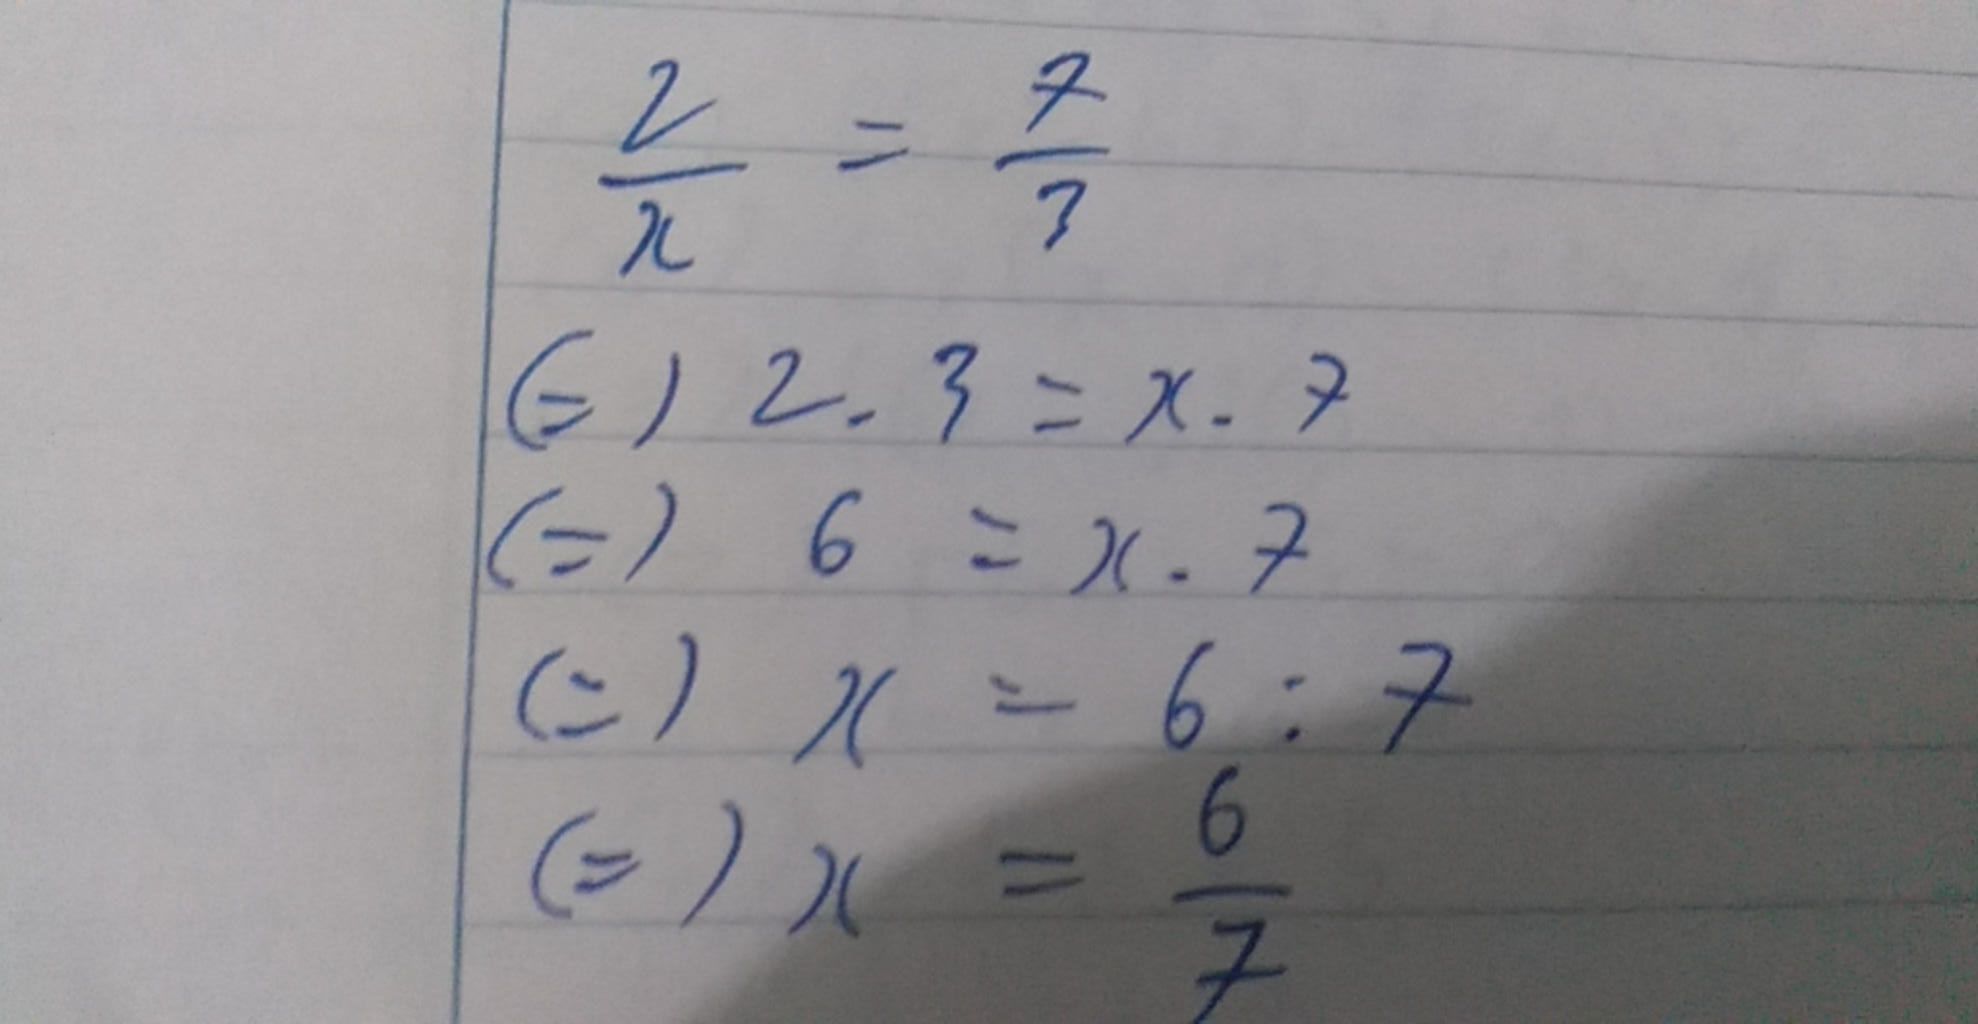 2/x = 7/3
(=) 2 . 3 = x . 7
(=) 6 = x . 7
(=) x = 6 : 7
(=) x = 6/7